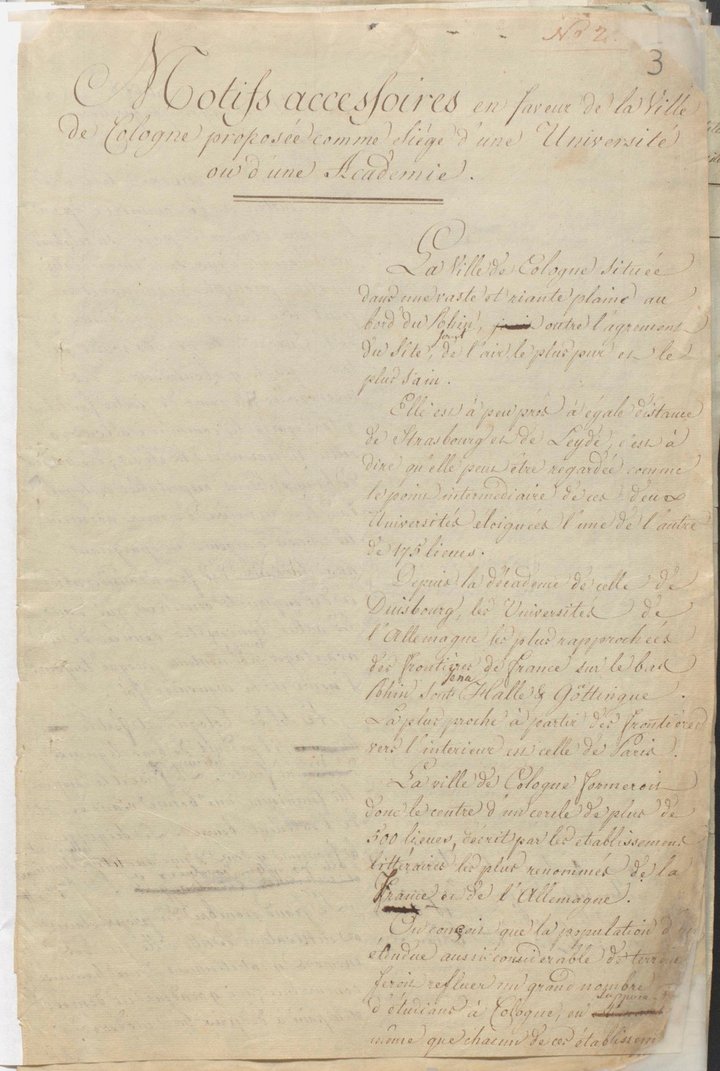 No 2.
3
Motifs accessoires en faveur de la Ville
de Cologne proposée comme Siège d'une Université
ou d'une Academie.
La Ville de Cologne située
dans une vaste et riante plaine au
bord du Rhin, outre l'agrement
du Site, jouit de l'air le plus pur et le
plus sain.
Elle est à peu près à égale distance
de Strasbourg et de Leyde, c'est à
dire qu'elle peut être regardée comme
le point intermediaire de ces deux
Universités éloignées l'une de l'autre
de 175 lieues.
Depuis la décadence de celle de
Duisbourg, les Universités de
l'Allemagne les plus rapprochées
des frontières de France sur le bas
Rhin sont Jena Halle & Göttingue.
La plus proche à partir des frontières
vers l'interieur est celle de Paris.
La ville de Cologne formeroit
donc le centre d'un cercle de plus de
500 lieues, décrit par les etablissemens
litteraires les plus renommés de la
France et de l'Allemagne.
On conçoit que la population d'une
étendue aussi considérable de terrein
feroit refluer un grand nombre
d'étudians à Cologne, en
même que chacun de ces établissem